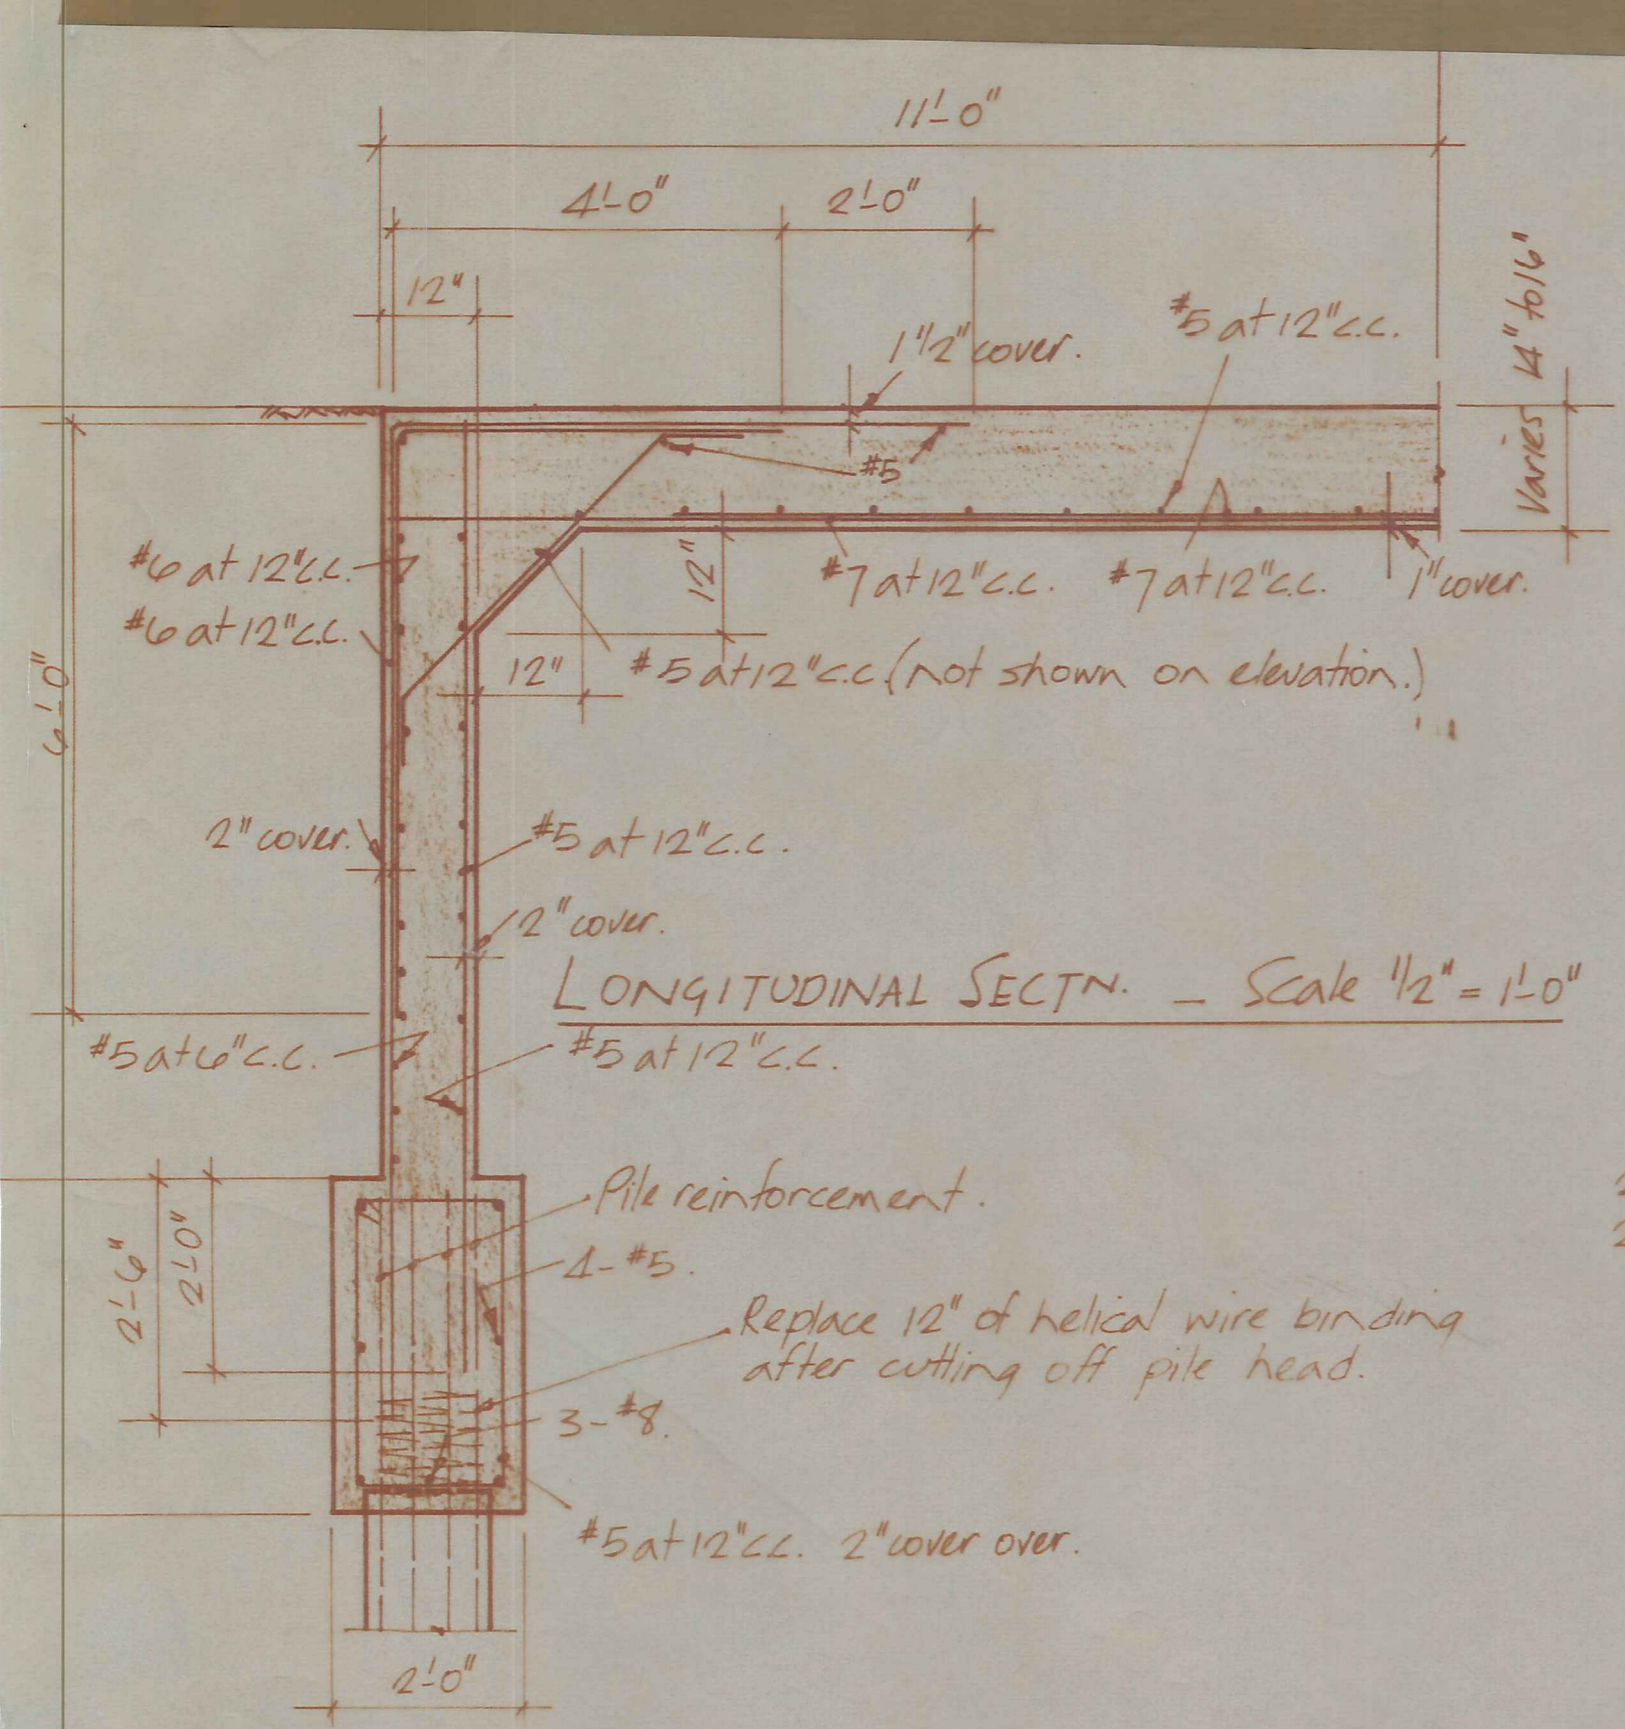 11'-0"
4'-0"
2'-0"
12"
1 1/2" cover.
#5 at 12" c.c.
Varies 14" to 16"
#5
#6 at 12" c.c.
#6 at 12" c.c.
12"
#7 at 12" c.c.
#7 at 12" c.c.
1" cover.
12"
#5 at 12" c.c. (not shown on elevation.)
6'-0"
2" cover.
#5 at 12" c.c.
2" cover.
LONGITUDINAL SECTN. - Scale 1/2" = 1'-0"
#5 at 6" c.c.
#5 at 12" c.c.
Pile reinforcement.
2'-6"
2'-0"
4-#5.
Replace 12" of helical wire binding
after cutting off pile head.
3-#8.
#5 at 12" c.c. 2" cover over.
2'-0"